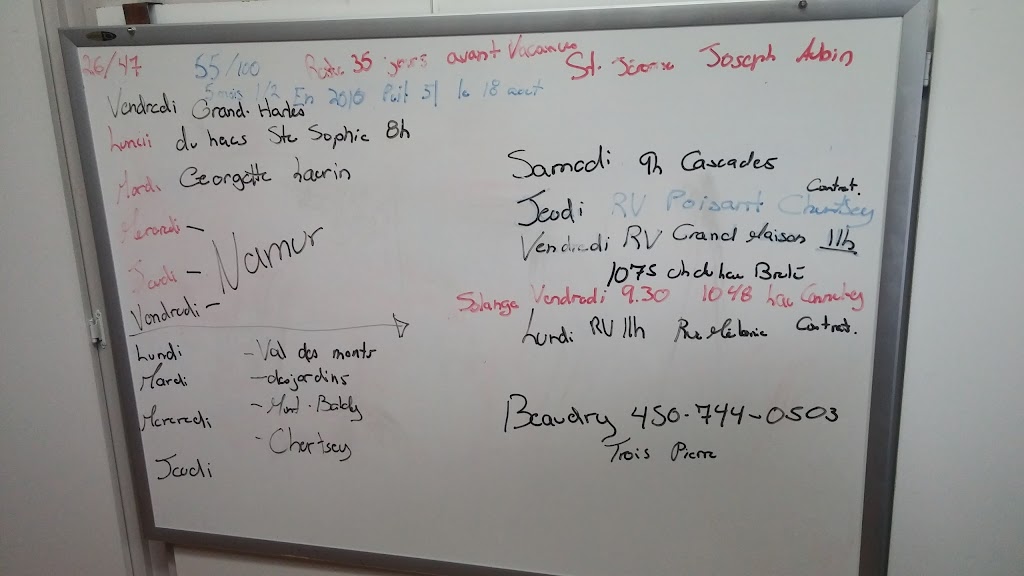 26/47 55/100 Reste 35 jours avant Vacances St. Jérome Joseph Aubin
5 mois 1/2 En 2010 Puit 51 le 18 aout
Vendredi Grand.
Lundi du haes Ste Sophie 8h
Mardi Georgette Laurin
Mercredi -
Jeudi - Namur
Vendredi -
Lundi - Val des monts
Mardi - desjardins
Mercredi - Mont.
- Chertsey
Jeudi
Samedi 9h Cascades
Jeudi RV Poisant Chertsey Contrat.
Vendredi RV Grand Maison 11h
1075 ch du Lac Brulé
Solange Vendredi 9.30 1048 Lac
Lundi RV 11h Rue Mélanie Contrat.
Beaudry 450-744-0503
Trois Pierre